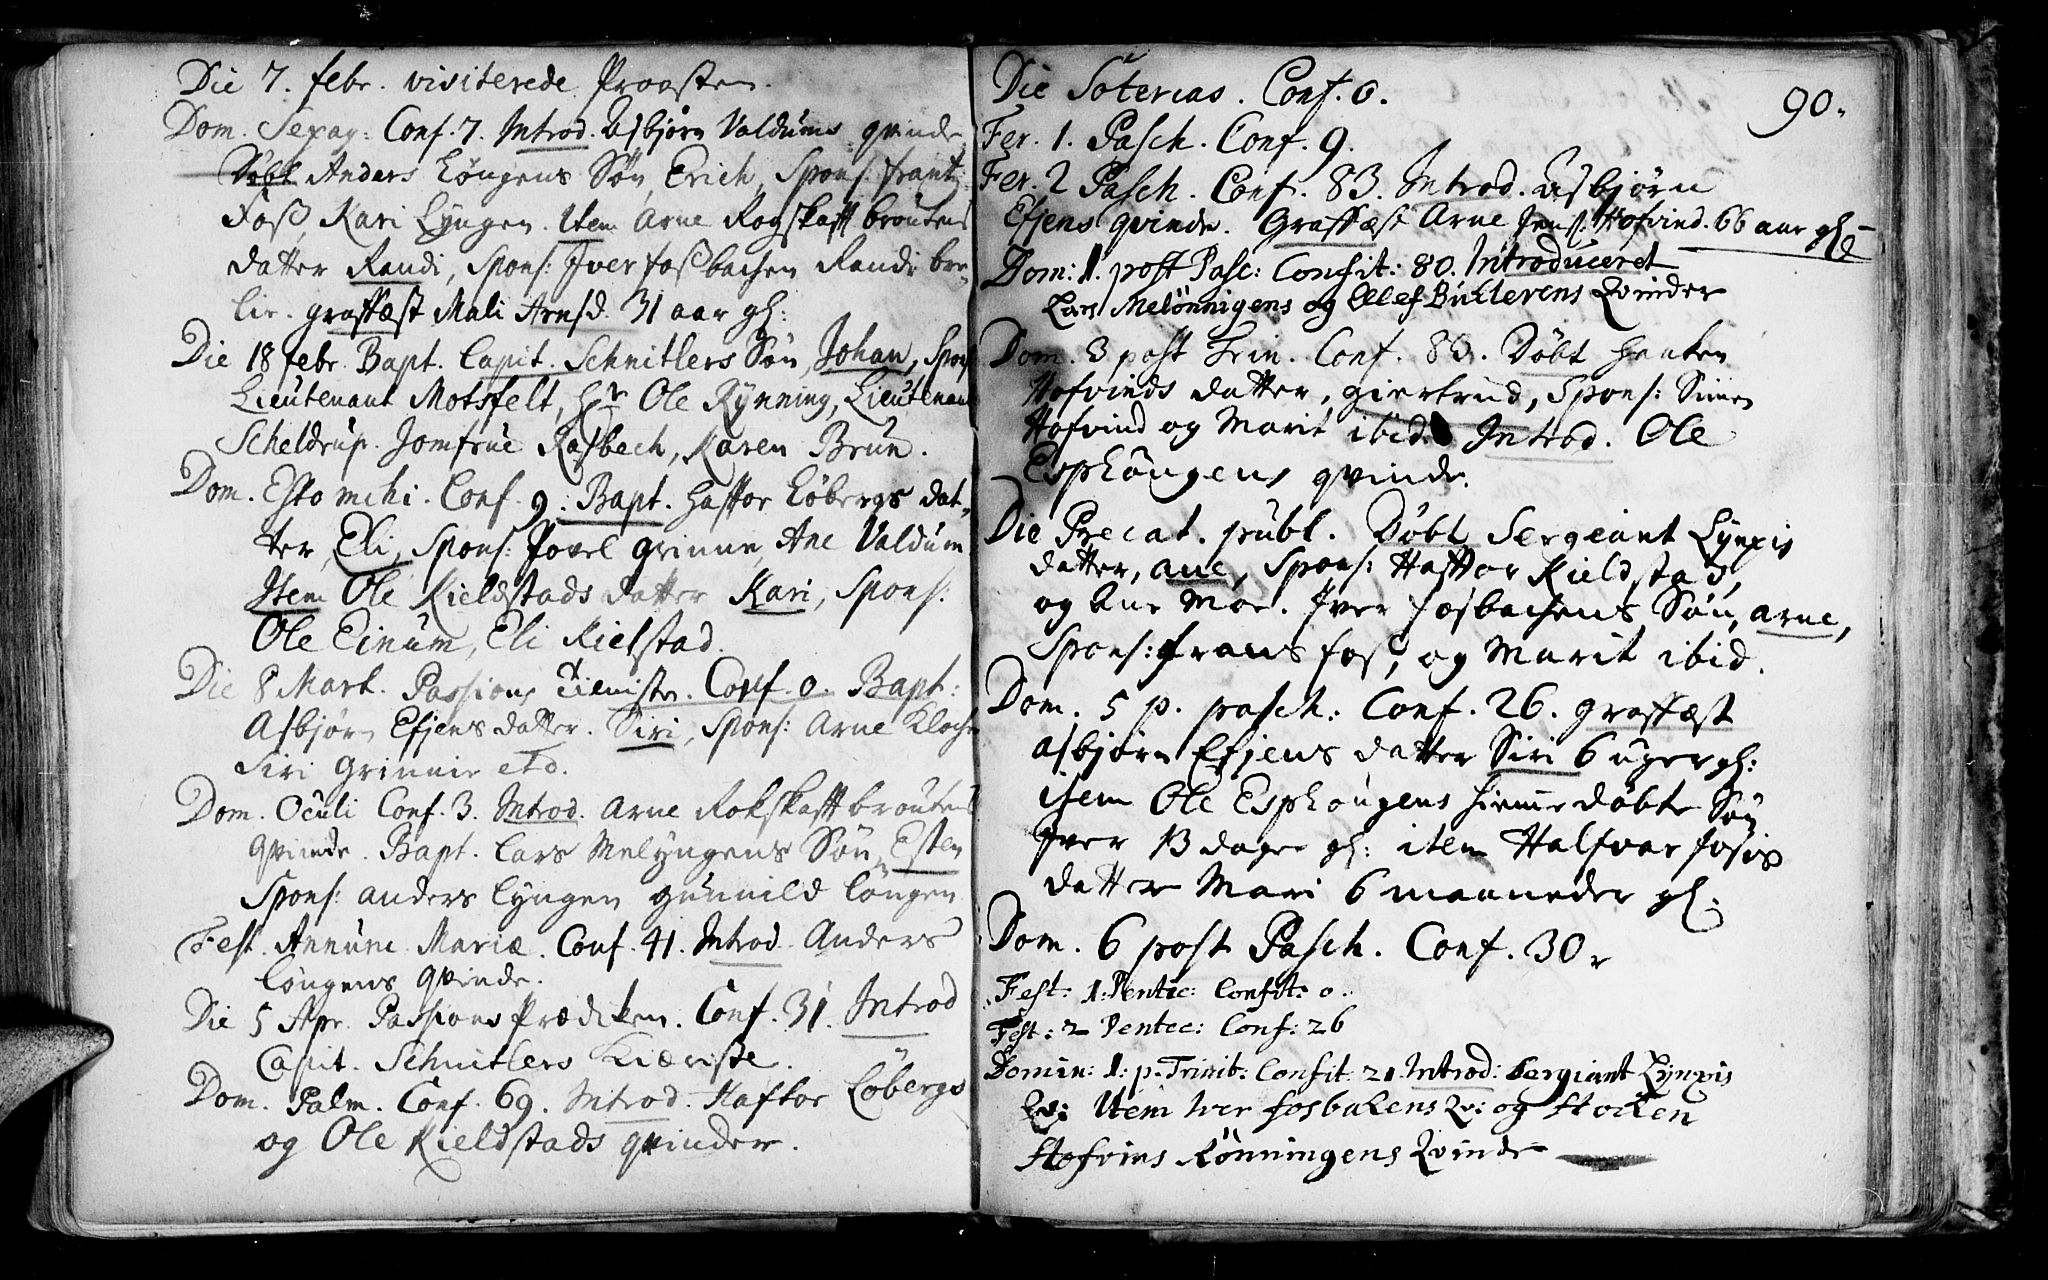 Die 7. febr. visiterede Proosten.
Dom. Sexag: Conf. 7. Introd. Asbjörn Valdums qvinde
Döbt Anders Löngens Sön, Erich, Spons: frantz
Foß, Kari Lyngen. Item Arne Rogskafft broutens
datter Randi, Spons: Iver foßbachen Randi bre-
lie. graffæst Mali Arnsd. 31 aar gl:
Die 18 febr. Bapt. Capit. Schnitlers Sön, Johan, Spons
Lieutenant Motsfelt, Hr Ole Rÿnning, Lieutenant
Scheldrup. Jomfrue Rosbech, Karen Brun.
Dom. Esto mihi. Conf. 9. Bapt. Haftor Löbergs dat-
ter, Eli, Spons: Povel grinne, Ane Valdum
Item Ole Kieldstads datter Kari, Spons:
Ole Einum, Eli Kielstad.
Die 8 Mart. Passions Tieniste. Conf. 0. Bapt:
Asbjörn Efjens datter. Siri, Spons: Arne Kloch
Siri Grinnie etc.
Dom. Oculi Conf. 3. Introd. Arne Rokskafft broutens
qvinde. Bapt. Lars Melyngens Sön, Esten
Spons: anders Lyngen gunnild Löngen
Fest. Annunc. Mariæ. Conf. 41. Introd. Anders
Löngens qvinde.
Die 5 Apr. Passions Prædiken. Conf. 31. Introd
Capit. Schnitlers Kiæriste.
Dom. Palm. Conf. 69. Introd. Haftor Löbergs
og Ole Kieldstads qvinder.
90.
Die Soterias. Conf. 0.
Fer. 1. Pasch. Conf. 9.
Fer. 2 Pasch. Conf. 83. Introd. Asbjörn
Efjens qvinde. Graffæst Arne Jens: Hofvind. 66 aar gl:
Dom: 1. post Pasc: Confit: 80. Introduceret
Lars Melönnigens og Ellef Bullerens Qvinder
Dom. 3 post Trin. Conf. 83. Döbt Henken
Hofvinds datter, giertrud, Spons: Simen
Hofvind og Marit ibid. Introd. Ole
Esphöugens qvinde.
Die Precat. publ. Döbt Sergeant Lynxis
datter, ane, Spons: Hafftor Kieldstad,
og Ane Moe. Iver fosbachens Sön, arne,
Spons: frans fos, og Marit ibid.
Dom. 5 p. pasch: Conf. 26. graffæst
asbjörn Efjens datter Siri 6 uger gl:
item Ole Esphougens hiemmedöbte Sön
Iver 13 dage gl: item Halfvar fosis
datter Mari 6 maaneder gl:
Dom. 6 post Pasch. Conf. 30.
Fest: 1: Pentec: Confit: 0.
Fest: 2 Pentec: Conf: 26
Domin: 1: p: Trinit: Confit: 21. Introd: Sergiant Lynxis
Qv: Item Iver fosbakens Qv: og Stocken
Hofvins Rönningens Qvinde